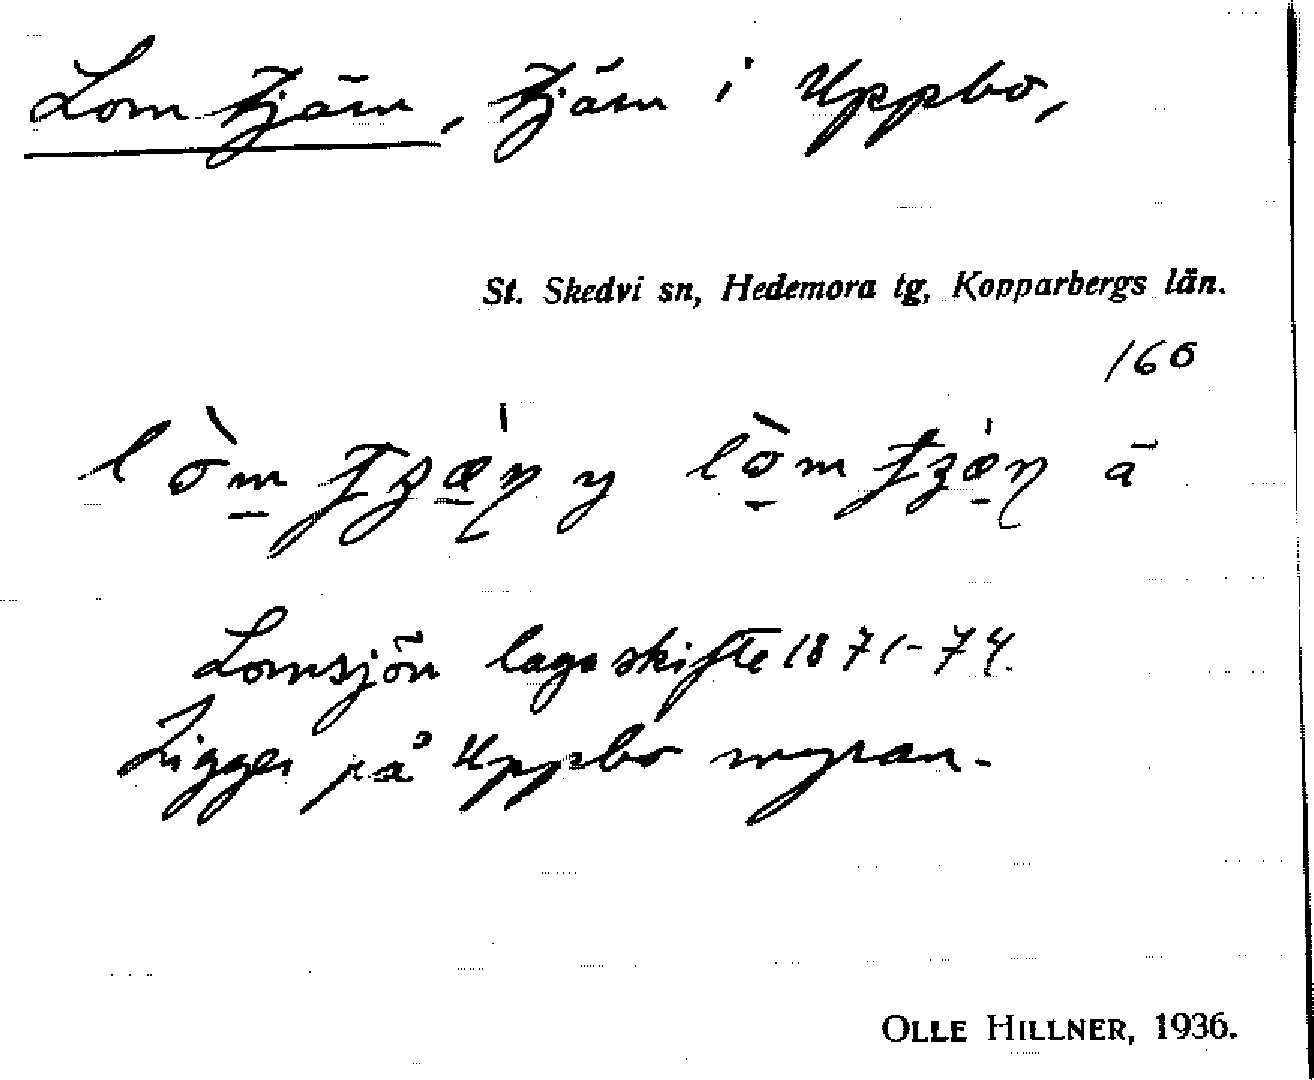 Lomtjärn, tjärn i Uppbo,
St. Skedvi sn, Hedemora tg, Kopparbergs län.
160
Lomsjön lagaskifte 1871-74.
Ligger på Uppbo myran.
OLLE HILLNER, 1936.